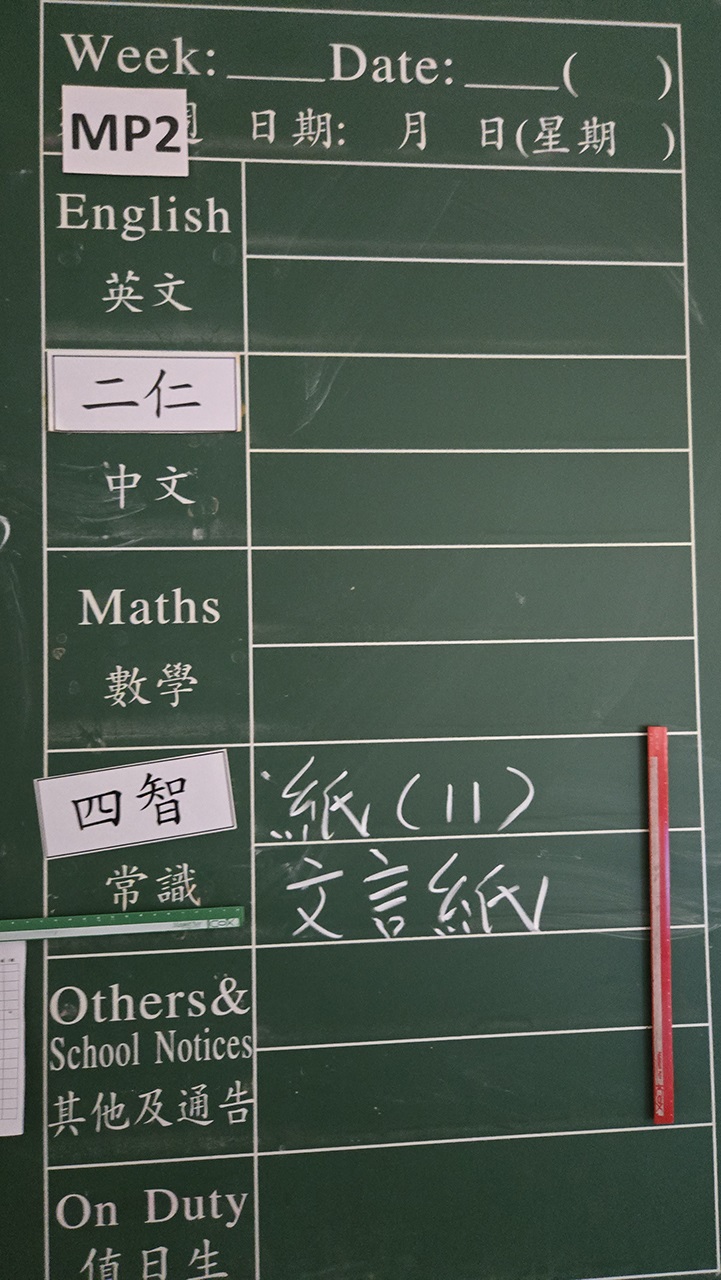 Week: ____ Date: ____ (    )
MP2 週 日期: 月 日(星期 )
English
英文
二仁
中文
Maths
數學
四智
紙(11)
常識
文言紙
Others&
School Notices
其他及通告
On Duty
值日生